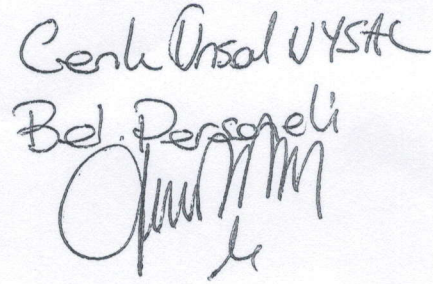 Cenk Ünsal UYSAL
Bel. Personeli